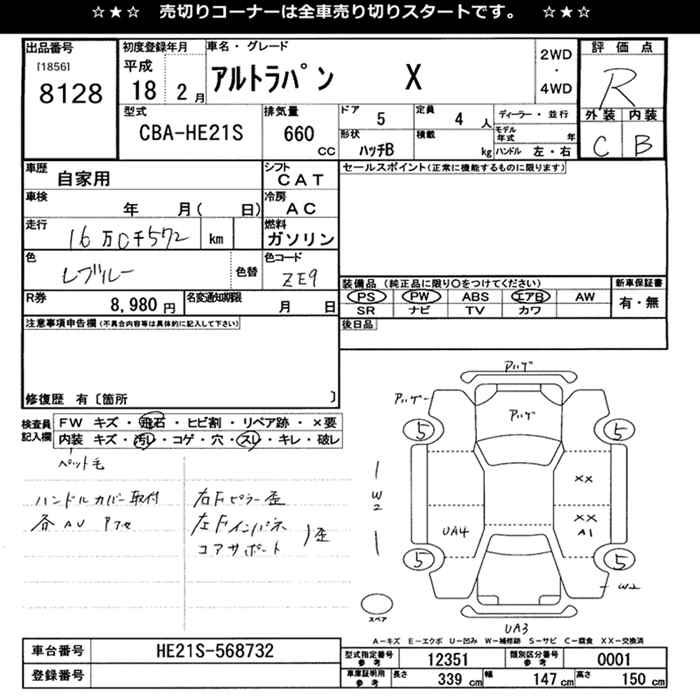 ☆★☆ 売切りコーナーは全車売り切りスタートです。 ☆★☆
出品番号
[1856]
8128
初度登録年月
平成
18 2 月
車名・グレード
アルトラパン X
2WD
・
4WD
評価点
R
外装 内装
C B
型式
CBA-HE21S
排気量
660 CC
ドア
5
定員
4 人
ディーラー・並行
形状
ハッチB
積載
kg
モデル年式 年
ハンドル 左・右
車歴
自家用
シフト
CAT
セールスポイント(正常に機能するものに限ります)
車検
年 月( 日)
冷房
AC
走行
16万0千572 km
燃料
ガソリン
色
色替
色コード
ZE9
装備品(純正品に限り〇をつけてください)
新車保証書
PS PW ABS エアB AW
有・無
SR ナビ TV カワ
R券
8,980 円
名変通知期限
月 日
後日品
注意事項申告欄(不具合内容等は具体的に記入して下さい)
修復歴 有〔箇所 〕
検査員
記入欄
FW キズ・飛石・ヒビ割・リペア跡・×要
内装 キズ・汚レ・コゲ・穴・スレ・キレ・破レ
ペット毛
ハンドルカバー取付
右Fピラー歪
左Fインパネ
コアサポート
歪
アハゲ
アハゲ
アハゲ
5
5
5
5
W2
XX
XX
A1
UA4
W2
UA3
スペア
A−キズ E−エクボ U−凹み W−補修跡 S−サビ C−腐食 XX−交換済
車台番号
HE21S-568732
登録番号
型式指定番号
参考
12351
類別区分番号
参考
0001
車庫証明用
参考
長さ 339 cm 幅 147 cm 高さ 150 cm